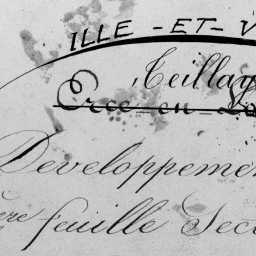 ILLE - ET - V
Teillay
Ercé - en - La
Developpemen
ère feuille Sec